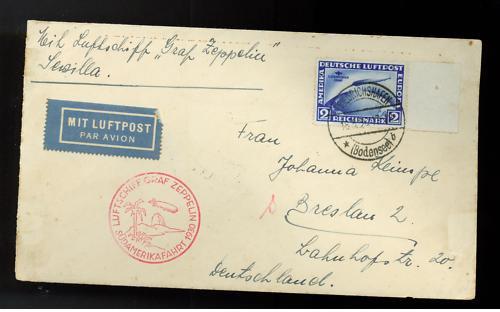 Mit Luftschiff „Graf Zeppelin“
Sevilla.
MIT LUFTPOST
PAR AVION
DEUTSCHE LUFTPOST
AMERIKA
EUROPA
2 REICHSMARK 2
(Bodensee) b
LUFTSCHIFF GRAF ZEPPELIN
SÜDAMERIKAFAHRT 1930
Frau
Johanna
Breslau 2.
Bahnhofstr. 20.
Deutschland.